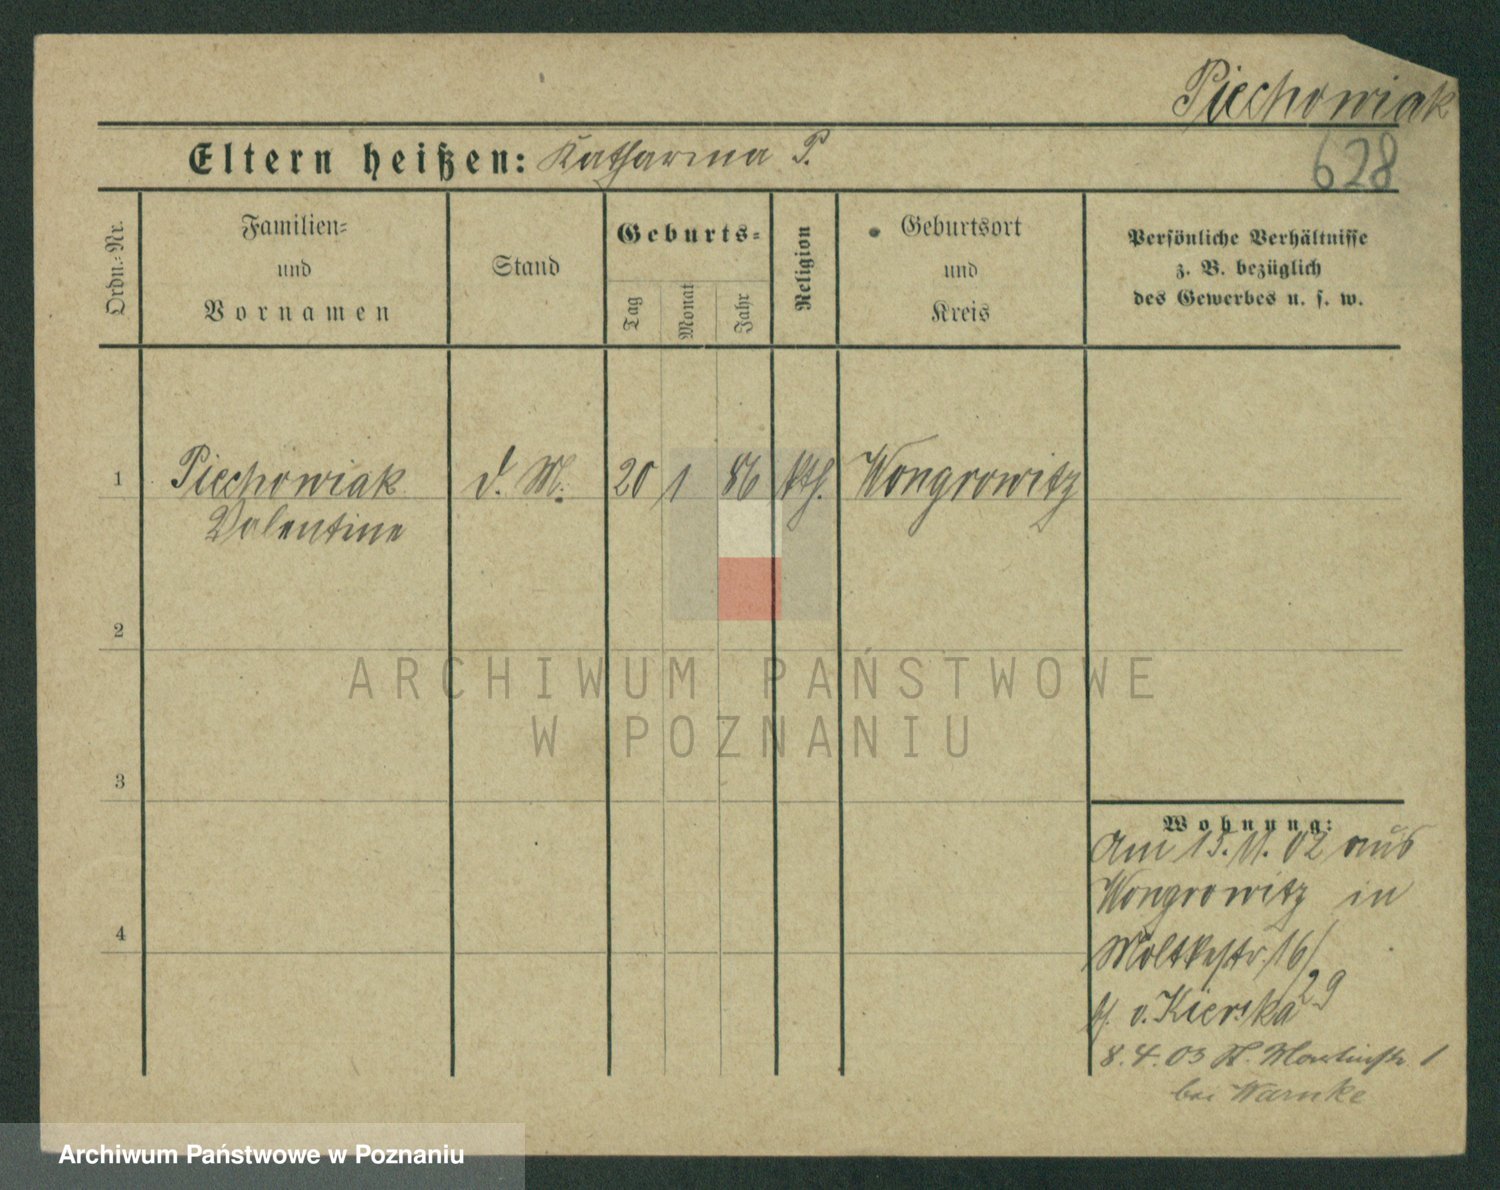 Piechowiak
Eltern heißen: Katharina P.
628
Ordn.-Nr.
Familien-
und
Vornamen
Stand
Geburts-
Tag
Monat
Jahr
Religion
Geburtsort
und
Kreis
Persönliche Verhältnisse
z. B. bezüglich
des Gewerbes u. s. w.
1 Piechowiak d. M. 20 1 86 kth. Wongrowitz
Valentine
2
3
4
Wohnung:
Am 15. 11. 02 aus
Wongrowitz in
Moltkestr. 16/
29
v. Kierska
8. 4. 03 St. Martinstr. 1
bei Warnke
ARCHIWUM PAŃSTWOWE
W POZNANIU
Archiwum Państwowe w Poznaniu